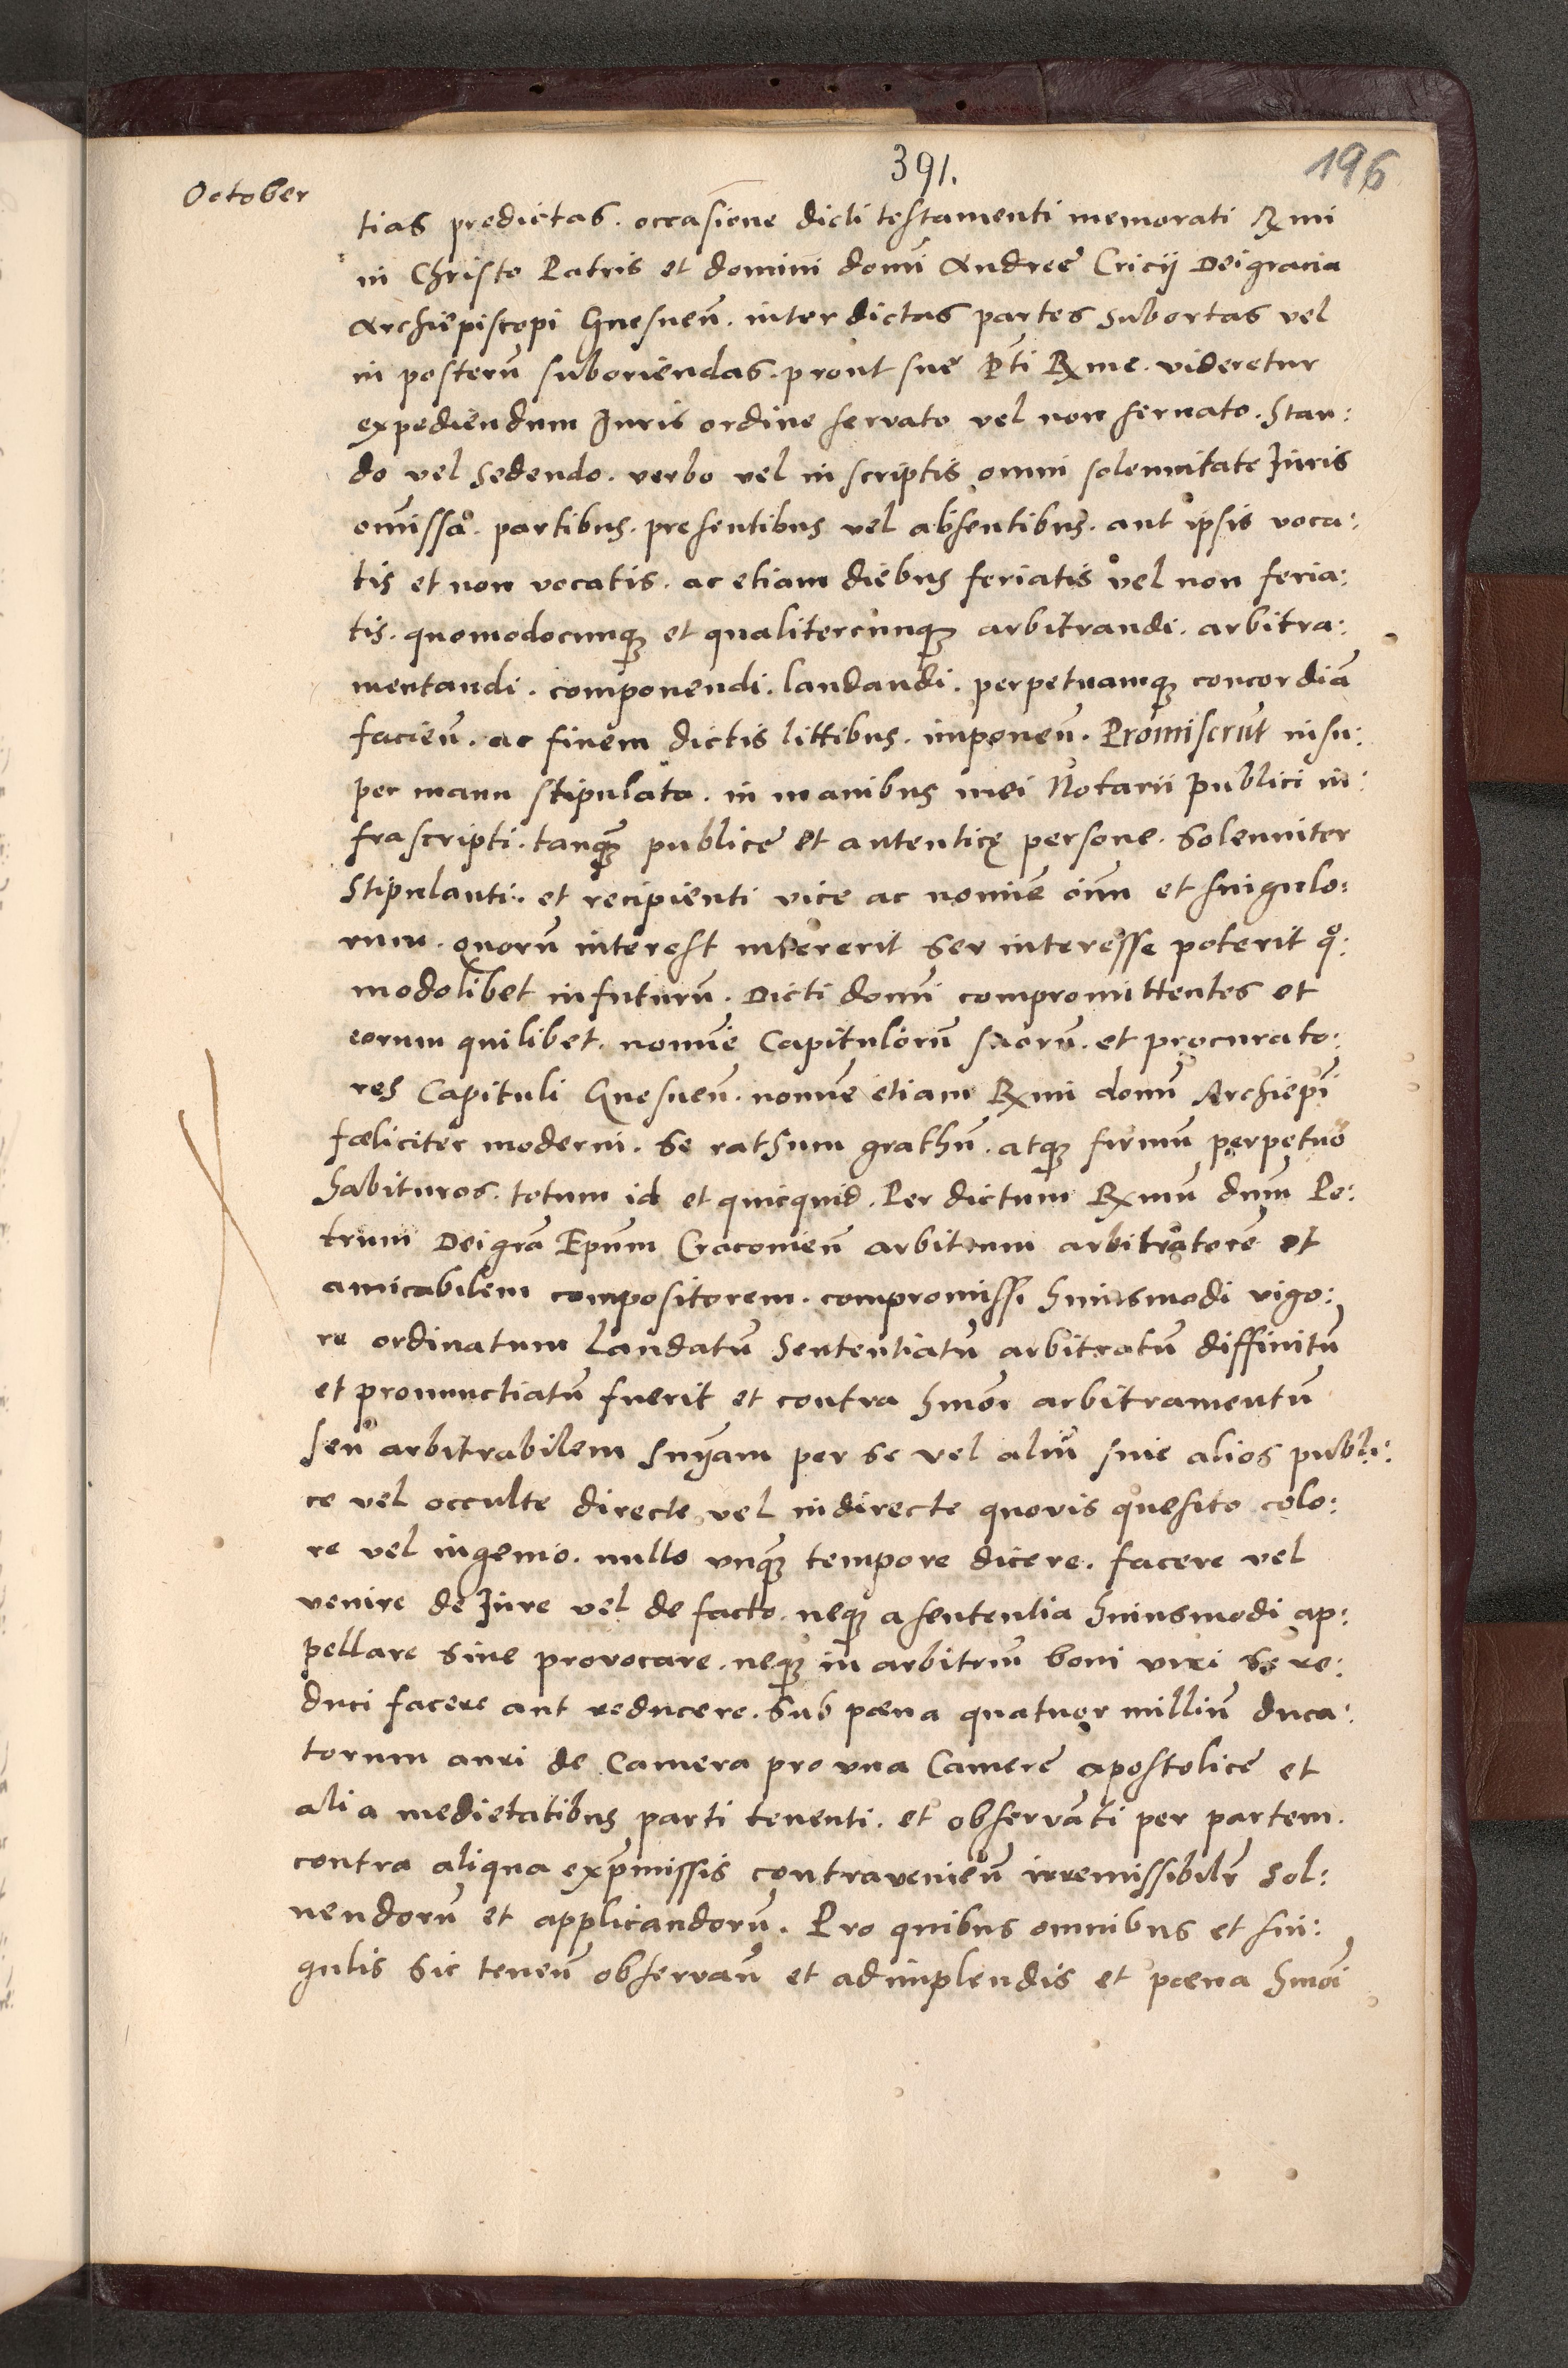 391.
196
October
tias predictas. occasione dicti testamenti memorati Rmi
in Christo Patris et domini domi Andree Cricij Deigracia
Archiepiscopi Gnesneñ. inter dictas partes subortas vel
in posterũ suboriendas. prout sue Pti Rme. videretur
expediendum Juris ordine servato vel non servato. Stan:
do vel Sedendo. verbo vel in scriptis omni solennitate Juris
omissa. partibus. presentibus vel absentibus. aut ipsis voca:
tis et non vocatis. ac etiam diebus feriatis vel non feria:
tis. quomodocunqʒ et qualitercunqʒ arbitrandi. arbitra:
mentandi. componendi. laudandi. perpetuamqʒ concordiã
facieñ. ac finem dictis littibus. imponeñ. Promiserũt insu:
per manu stipulata. in manibus mei Notarii publici in:
frascripti. tanqʒ publice et autenticę persone. Solenniter
Stipulanti. et recipienti vice ac nomine oiũm et singulo:
rum. quorũ interest intererit seu interesse poterit qº:
modolibet in futurũ. Dicti domi compromittentes et
eorum quilibet. nomine Capitulorũ suorũ. et procurato:
res Capituli Gnesneñ. nomine etiam Rmi domi Archiepi
fœliciter moderni. Se rathum grathũ. atqʒ firmũ perpetuo
habituros. totum id et quicquid. Per dictum Rmũ dnũm Pe:
trum Deigrã Epũm Cracovieñ arbitrum arbitratorẽ et
amicabilem compositorem. compromissi huiusmodi vigo:
re ordinatum laudatũ Sententiatũ arbitratũ diffinitũ
et pronunctiatũ fuerit et contra hmõi arbitramentũ
seu arbitrabilem snÿam per se vel aliũ sive alios publi:
ce vel occulte directe vel indirecte quovis quesito colo:
re vel ingenio. nullo unqʒ tempore dicere. facere vel
venire de Jure vel de facto. neqʒ a sententia huiusmodi ap:
pellare sive provocare. neqʒ in arbitriũ boni viri se re:
duci facere aut reducere. Sub pœna quatuor milliũ duca:
torum auri de Camera pro una Camere apostolice et
alia medietatibus parti tenenti. et observanti per partem.
contra aliqua expmissis contravenieñ irremissibilr Sol:
vendorũ et applicandorũ. Pro quibus omnibus et sin:
gulis sic teneñ observañ et adimplendis et pœna hmõi